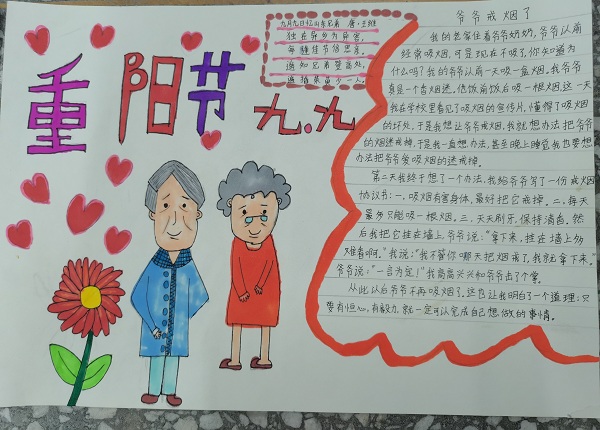 重阳节
九.九
九月九日忆山东兄弟 唐·王维
独在异乡为异客,
每逢佳节倍思亲。
遥知兄弟登高处,
遍插茱萸少一人。
爷爷戒烟了
我的老家住着爷爷奶奶,爷爷以前
经常吸烟,可是现在不吸了,你知道为
什么吗?我的爷爷以前一天吸一盒烟,我爷爷
真是一个香烟迷,他饭前饭后吸一根烟,这一天
我在学校里看见了吸烟的宣传片,懂得了吸烟
的坏处,于是我想让爷爷戒烟,我就想办法把爷爷
的烟迷戒掉,于是我一直想办法,甚至晚上睡觉我也要想
办法把爷爷爱吸烟的迷戒掉。
第二天我终于想了一个办法,我给爷爷写了一份戒烟
协议书:一、吸烟有害身体,最好把它戒掉。二、每天
最多只能吸一根烟。三、天天刷牙,保持清香。然
后我把它挂在墙上,爷爷说:“拿下来,挂在墙上多
难看啊。”我说:“我不管你哪天把烟戒了,我就拿下来。”
爷爷说:“一言为定!”我高高兴兴和爷爷击了个掌。
从此以后爷爷不再吸烟了,这也让我明白了一个道理:只
要有恒心,有毅力,就一定可以完成自己想做的事情。